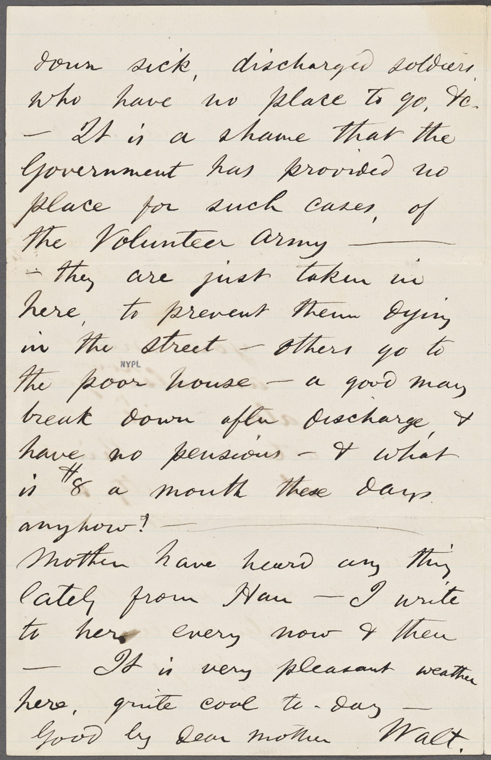 down sick, discharged soldiers,
who have no place to go, &c.
— It is a shame that the
Government has provided no
place for such cases, of
the Volunteer Army —
— they are just taken in
here, to prevent them dying
in the street — others go to
NYPL
the poor house — a good many
break down after discharge, &
have no pensions — & what
is $8 a month these days
anyhow? —
Mother have heard any thing
lately from Han — I write
to her every now & then
— It is very pleasant weather
here, quite cool to-day —
Good by dear mother Walt.